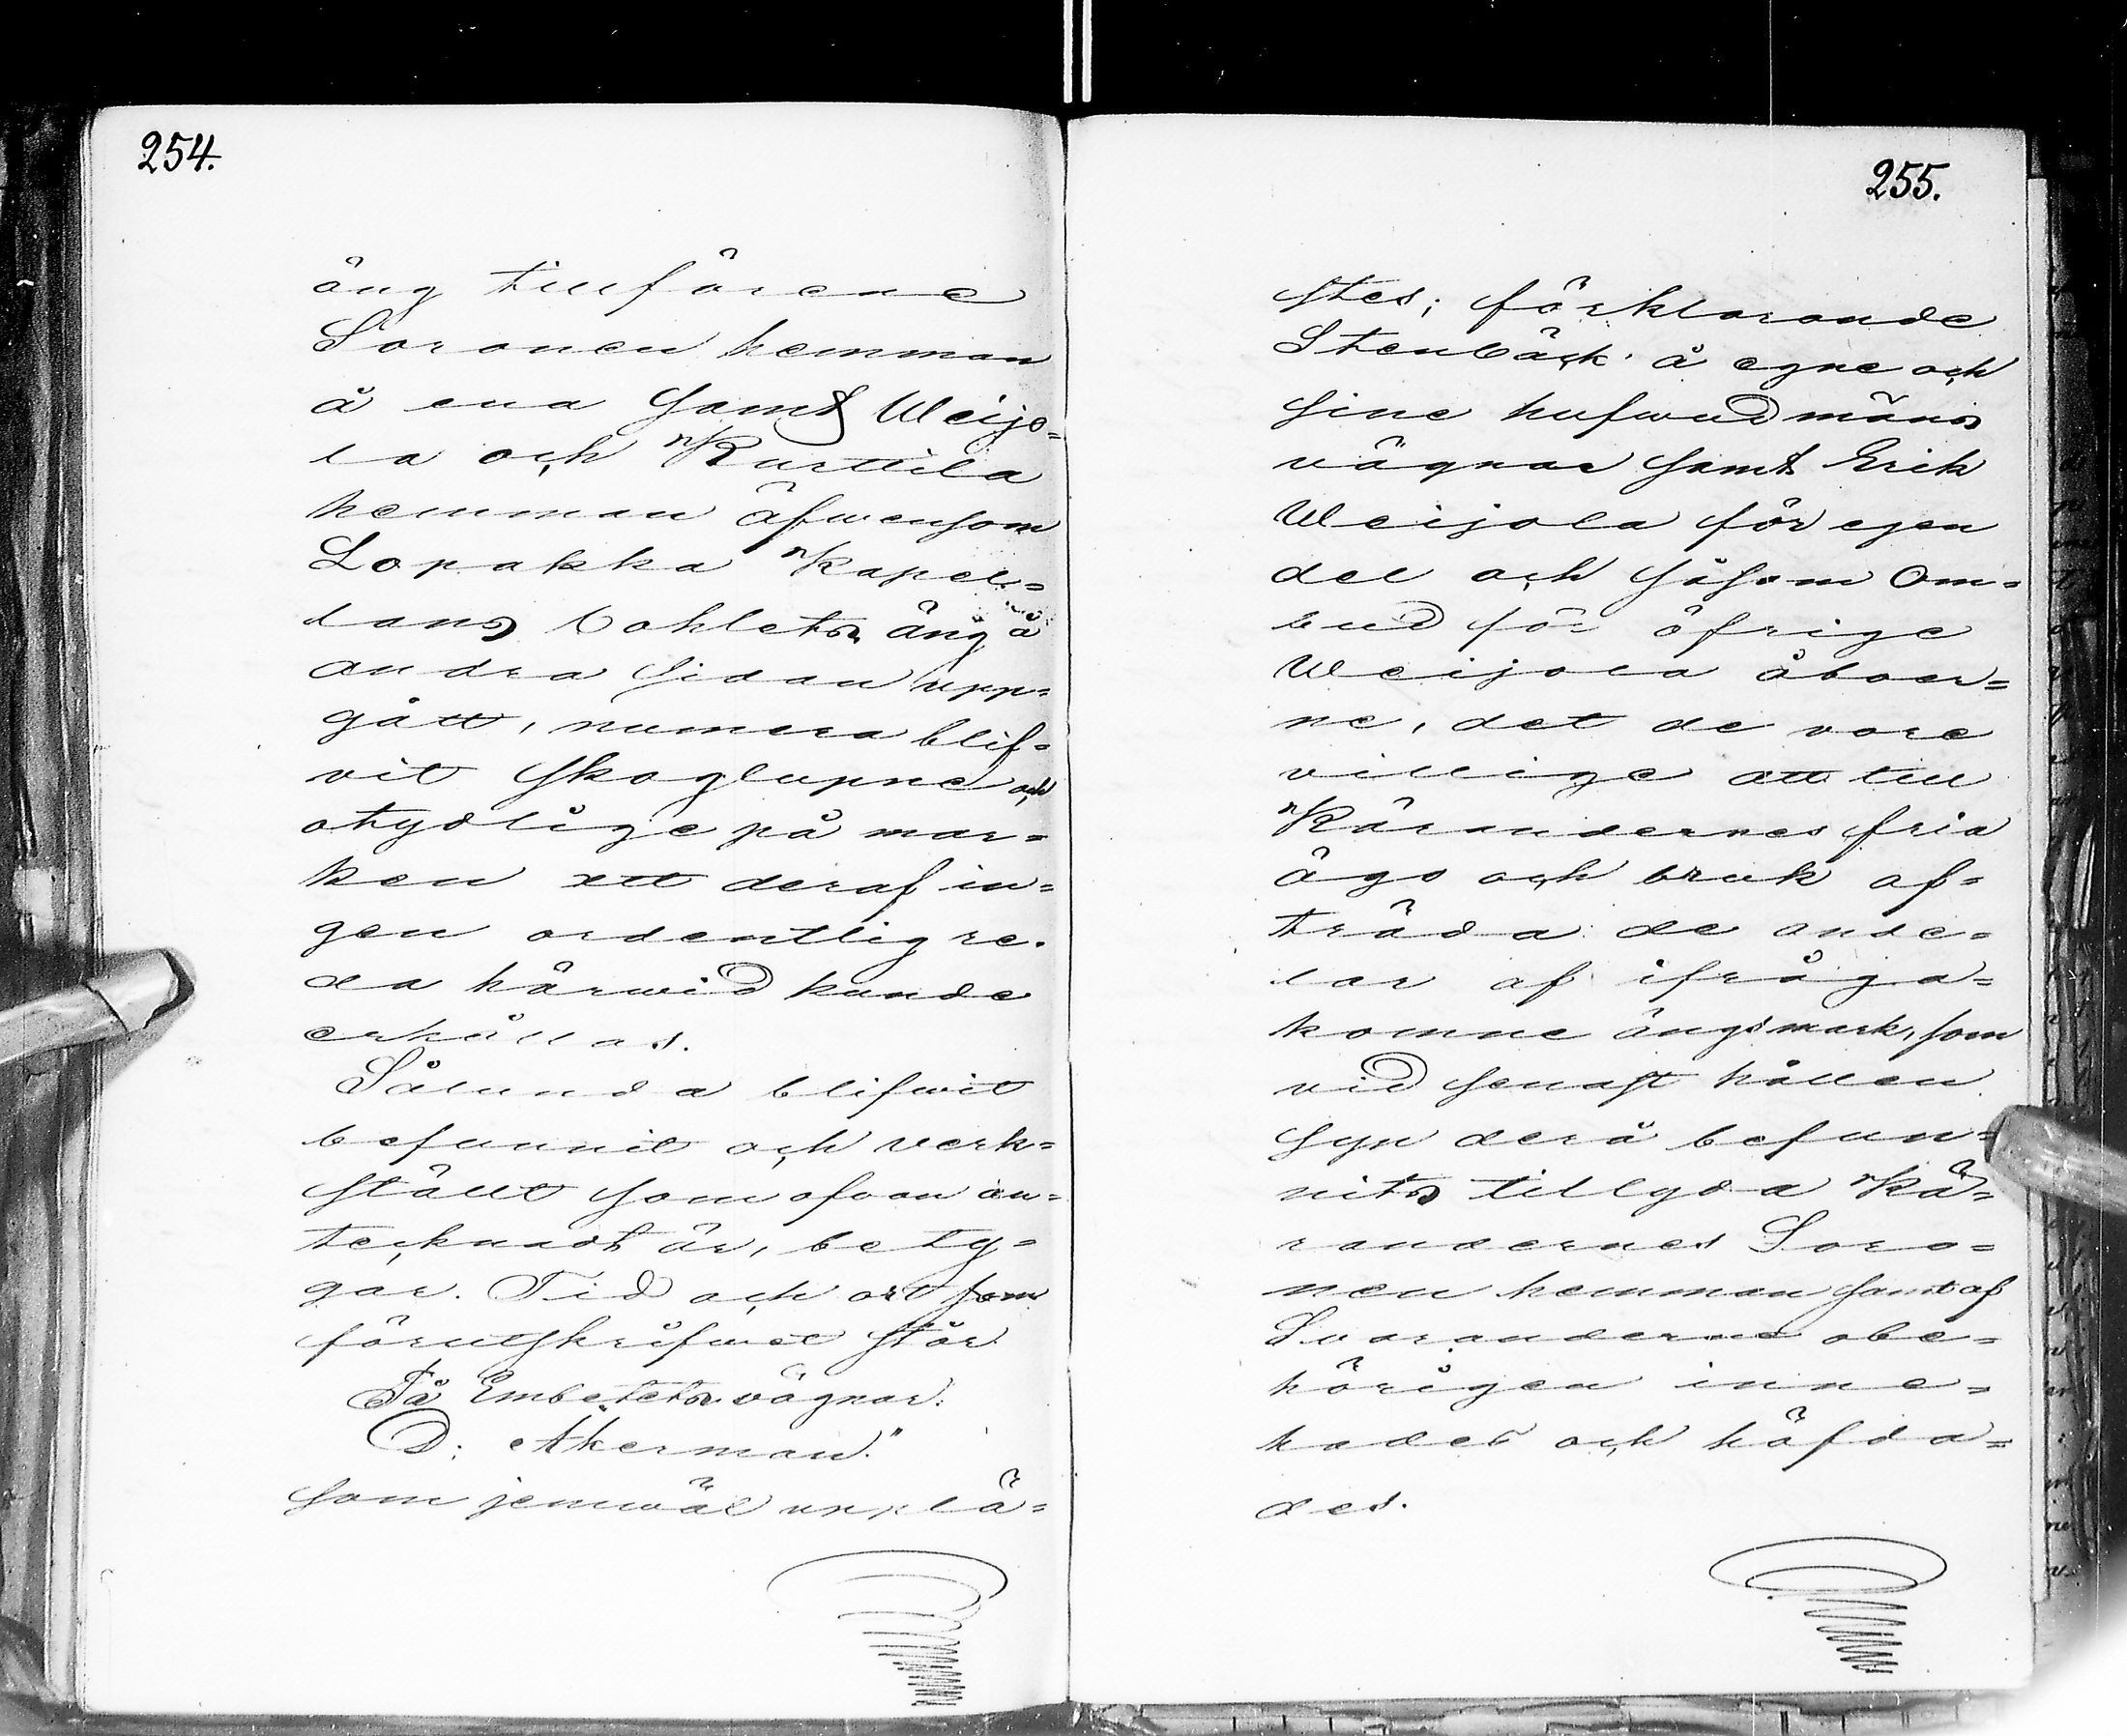 254.
äng tillförene
Soronen hemman
å ena samt Weijo=
la och Kurttila
hemman äfwensom
Lopakka Kapel=
lans bohlets äng å
andra sidan upp=
gått, numera blif=
vit skoglupne och
otydlige på mar=
ken att deraf in=
gen ordentlig re=
da härwid kunde
erhållas.
Sålunda blifwit
befunnit och verk=
ställt som ofvan an=
tecknadt är, bety=
gar. Tid och ort som
förutskrifwet står
På Embetets vägnar:
D: Åkerman."
som jemwäl upplä=
255.
stes; förklarande
Stenbäck å egne och
sine hufwudmäns
vägnar samt Erik
Weijola för egen
del och såsom Om=
bud för öfrige
Weijola åboer=
ne, det de vore
villige att till
Kärandernes fria
ägo och bruk af=
träda de ande=
lar af ifråga=
komne ängsmark, som
vid senast hållen
syn derå befun=
nits tillyda Kä=
randernes Soro=
nen hemman samt af
Svaranderne obe=
hörigen inne=
hades och häfda=
des.